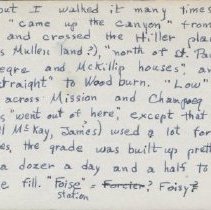 but I walked it many times
"came up the canyon" from
and crossed the Hiller pla
s Mullen land?), "north of St. Pau
egre and McKillip houses", an
straight" to Woodburn. "Low"
across Mission and Champoeg
s "went out of here", except that
l McKay, James) used a lot for
es, the grade was built up pret
a dozer a day and a half to
e fill. "Foise" = Forcier? Foisy?
station